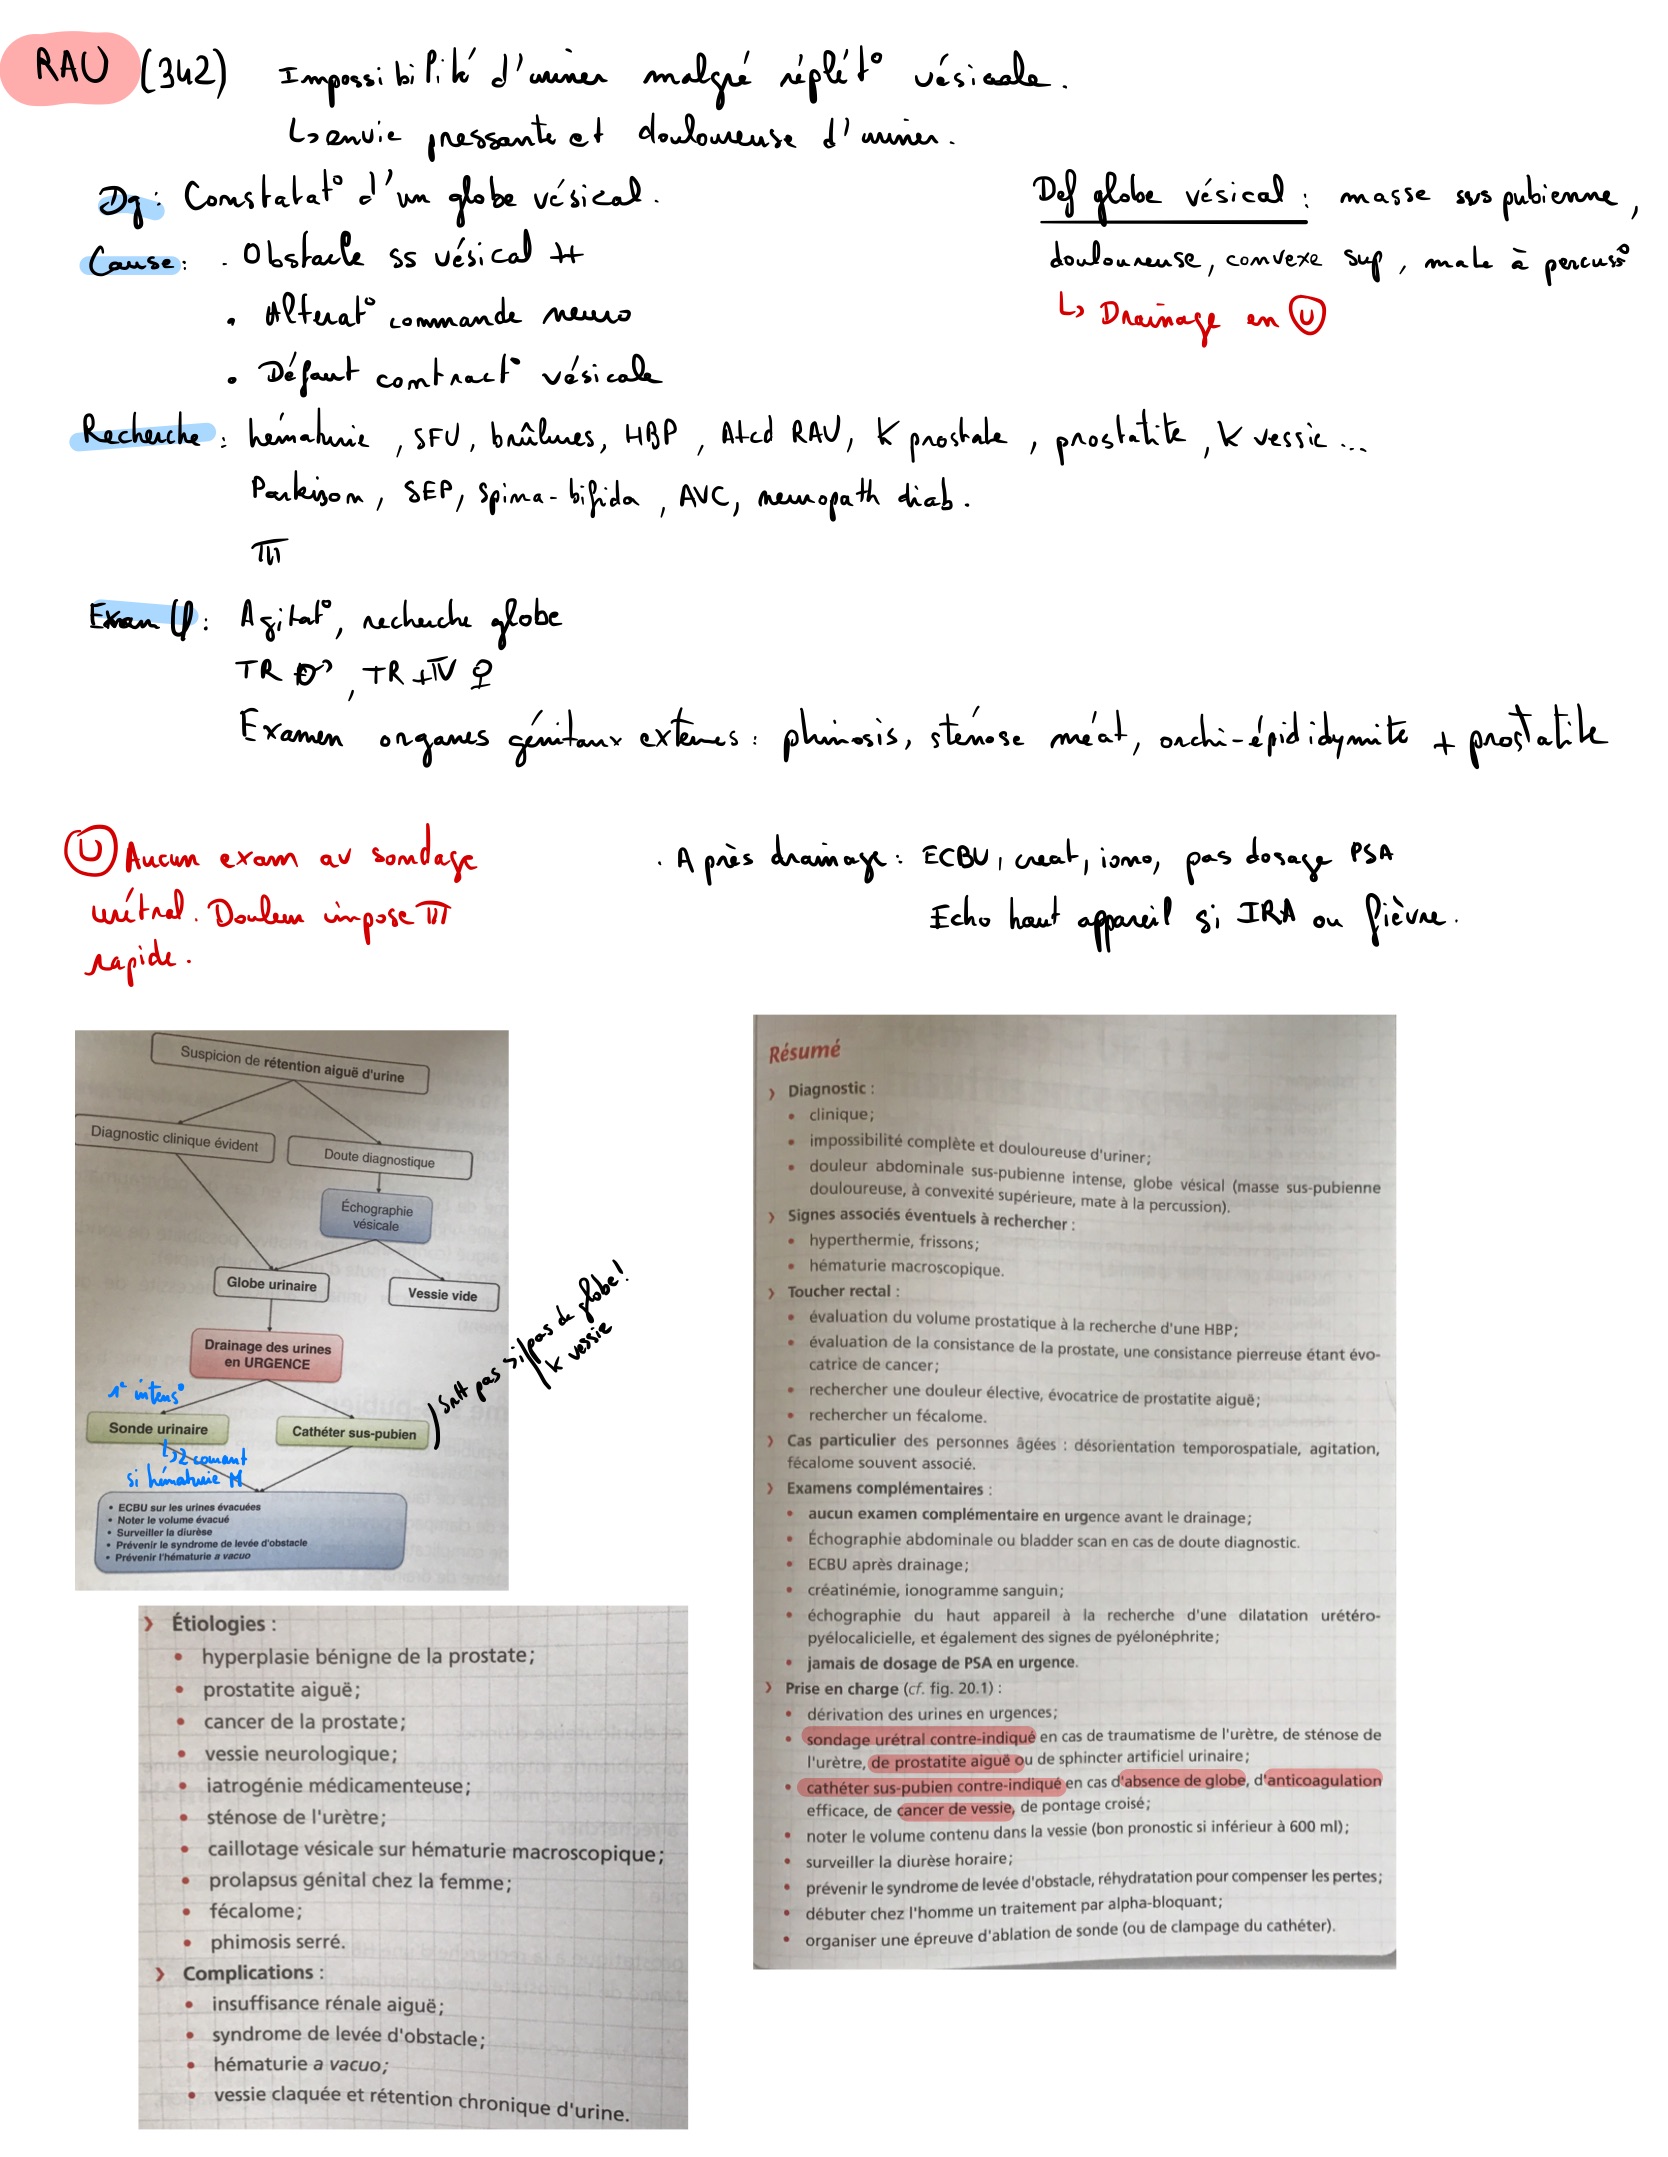 RAU (342) Impossibilité d'uriner malgré réplét° vésicale.
↳ envie pressante et douloureuse d'uriner.
Dg : Constatat° d'un globe vésical.
Def globe vésical : masse sus pubienne,
douloureuse, convexe sup, mate à percuss°
↳ Drainage en Ⓤ
Cause : . Obstacle ss vésical ++
• Alterat° commande neuro
• Défaut contract° vésicale
Recherche : hématurie, SFU, brûlures, HBP, Atcd RAU, K prostate, prostatite, K vessie ...
Parkison, SEP, spina-bifida, AVC, neuropath diab.
TTT
Exam φ : Agitat°, recherche globe
TR ♂, TR + TV ♀
Examen organes génitaux externes : phimosis, sténose méat, orchi-épididymite + prostatite
Ⓤ Aucun exam av sondage
urétral. Douleur impose TTT
rapide.
. Après drainage : ECBU, creat, iono, pas dosage PSA
Echo haut appareil si IRA ou fièvre.
Suspicion de rétention aiguë d'urine
Diagnostic clinique évident
Doute diagnostique
Échographie
vésicale
Globe urinaire
Vessie vide
Drainage des urines
en URGENCE
1° intens°
Sonde urinaire
Cathéter sus-pubien
Sntt pas si pas de globe!
K vessie
↳ 2 courant
si hématurie M
• ECBU sur les urines évacuées
• Noter le volume évacué
• Surveiller la diurèse
• Prévenir le syndrome de levée d'obstacle
• Prévenir l'hématurie a vacuo
› Étiologies :
• hyperplasie bénigne de la prostate;
• prostatite aiguë;
• cancer de la prostate;
• vessie neurologique;
• iatrogénie médicamenteuse;
• sténose de l'urètre;
• caillotage vésicale sur hématurie macroscopique;
• prolapsus génital chez la femme;
• fécalome;
• phimosis serré.
› Complications :
• insuffisance rénale aiguë;
• syndrome de levée d'obstacle;
• hématurie a vacuo;
• vessie claquée et rétention chronique d'urine.
Résumé
› Diagnostic :
• clinique;
• impossibilité complète et douloureuse d'uriner;
• douleur abdominale sus-pubienne intense, globe vésical (masse sus-pubienne
douloureuse, à convexité supérieure, mate à la percussion).
› Signes associés éventuels à rechercher :
• hyperthermie, frissons;
• hématurie macroscopique.
› Toucher rectal :
• évaluation du volume prostatique à la recherche d'une HBP;
• évaluation de la consistance de la prostate, une consistance pierreuse étant évo-
catrice de cancer;
• rechercher une douleur élective, évocatrice de prostatite aiguë;
• rechercher un fécalome.
› Cas particulier des personnes âgées : désorientation temporospatiale, agitation,
fécalome souvent associé.
› Examens complémentaires :
• aucun examen complémentaire en urgence avant le drainage;
• Échographie abdominale ou bladder scan en cas de doute diagnostic.
• ECBU après drainage;
• créatinémie, ionogramme sanguin;
• échographie du haut appareil à la recherche d'une dilatation urétéro-
pyélocalicielle, et également des signes de pyélonéphrite;
• jamais de dosage de PSA en urgence.
› Prise en charge (cf. fig. 20.1) :
• dérivation des urines en urgences;
• sondage urétral contre-indiqué en cas de traumatisme de l'urètre, de sténose de
l'urètre, de prostatite aiguë ou de sphincter artificiel urinaire;
• cathéter sus-pubien contre-indiqué en cas d'absence de globe, d'anticoagulation
efficace, de cancer de vessie, de pontage croisé;
• noter le volume contenu dans la vessie (bon pronostic si inférieur à 600 ml);
• surveiller la diurèse horaire;
• prévenir le syndrome de levée d'obstacle, réhydratation pour compenser les pertes;
• débuter chez l'homme un traitement par alpha-bloquant;
• organiser une épreuve d'ablation de sonde (ou de clampage du cathéter).